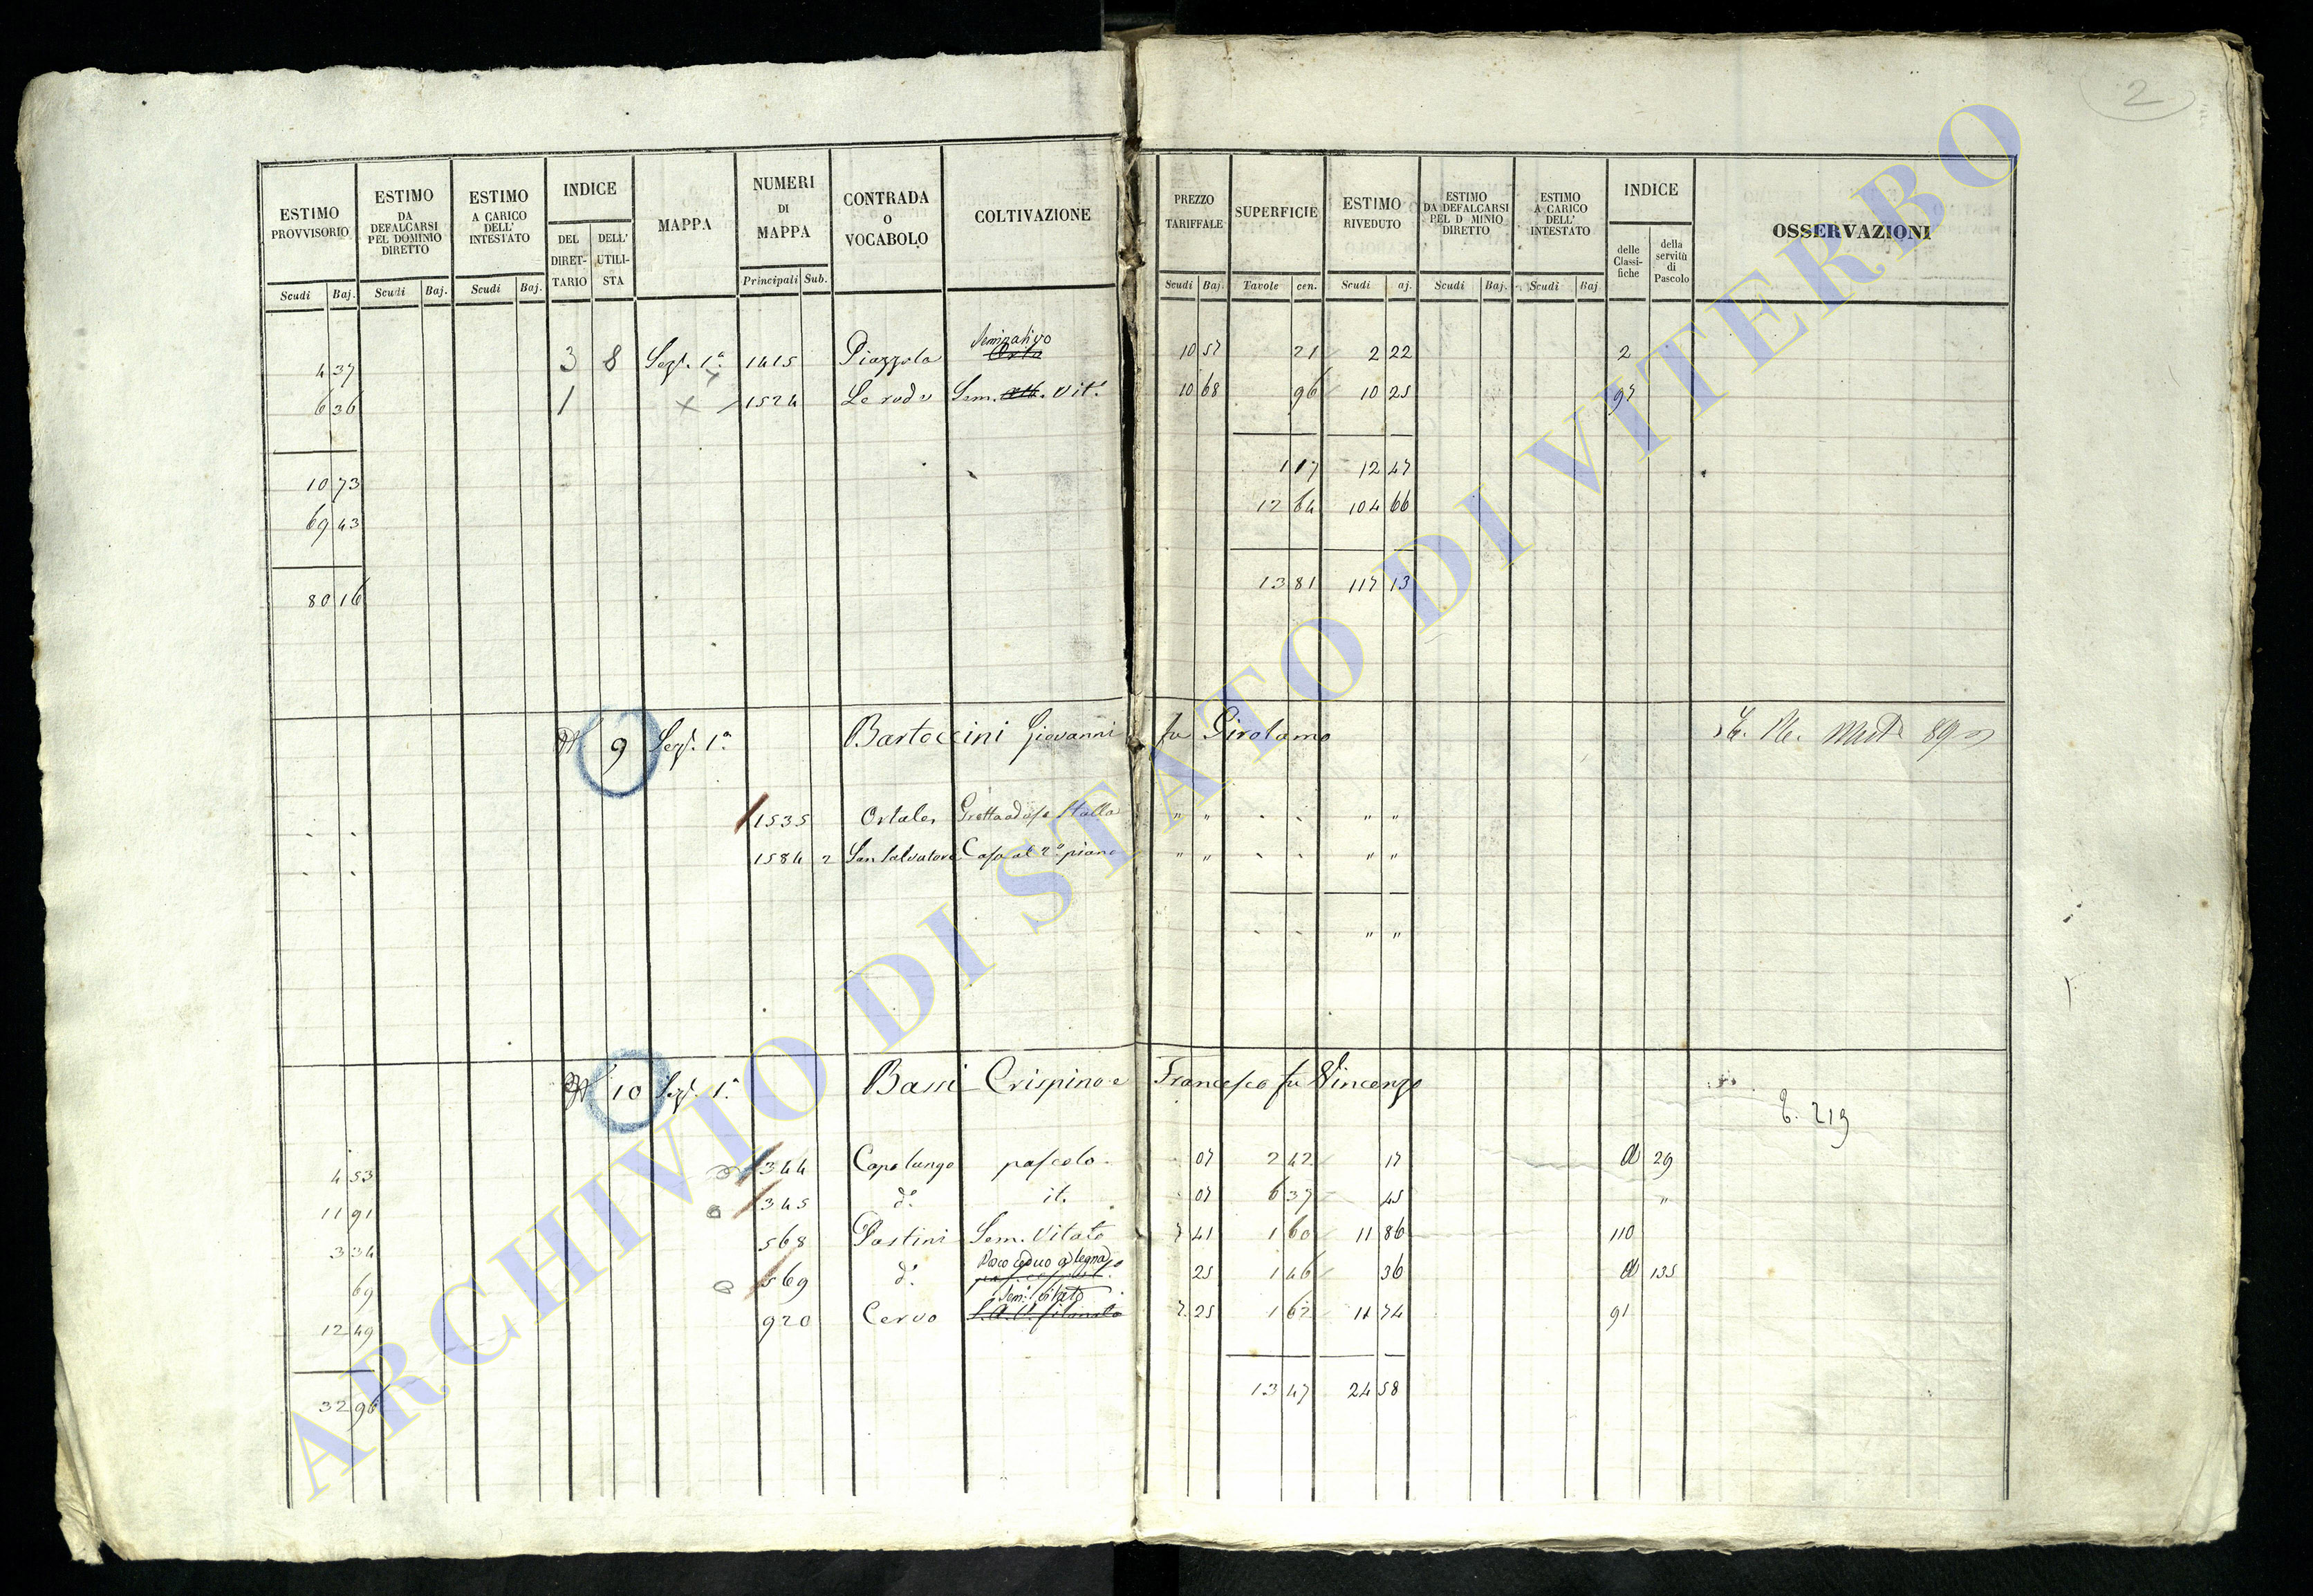 2
ESTIMO PROVVISORIO | ESTIMO DA DEFALCARSI PEL DOMINIO DIRETTO | ESTIMO A CARICO DELL' INTESTATO | INDICE DEL DIRETTARIO | DELL' UTILISTA | MAPPA | NUMERI DI MAPPA | CONTRADA O VOCABOLO | COLTIVAZIONE | PREZZO TARIFFALE | SUPERFICIE | ESTIMO RIVEDUTO | ESTIMO DA DEFALCARSI PEL D MINIO DIRETTO | ESTIMO A CARICO DELL' INTESTATO | INDICE delle Classifiche | della servitù di Pascolo | OSSERVAZIONI
Scudi | Baj. | Scudi | Baj. | Scudi | Baj. | Principali | Sub. | Scudi | Baj. | Tavole | cen. | Scudi | aj. | Scudi | Baj. | Scudi | Baj
Seminativo
4 37 | 3 | 8 | Seze. 1a. | 1415 | Piazzola | Orto | 10 57 | 21 | 2 22 | 2
6 36 | 1 | 1524 | Le rode | Sem. Vit.o | 10 68 | 96 | 10 25 | 97
10 73 | 1 17 | 12 47
69 43 | 12 64 | 104 66
80 16 | 13 81 | 117 13
9 | Seze. 1a. | Bartoccini Giovanni fu Girolamo
1535 | Ortale | Grotta ad uso Stalla | " " | " "
1584 | 2 | San Salvatore | Casa al 2o piano | " " | " "
" "
10 | Seze. 1a. | Bassi Crispino e Francesco fu Vincenzo
219
4 53 | 344 | Capolungo | pascolo | 07 | 2 42 | 17 | A | 29
11 91 | 345 | do. | id. | 07 | 6 37 | 45 | "
3 34 | 568 | Pastini | Sem. Vitato | 7 41 | 1 60 | 11 86 | 110
Bosco ceduo a legna
69 | 569 | do. | 25 | 1 46 | 36 | A | 135
Sem. Vitato
12 49 | 920 | Cervo | 7 25 | 1 62 | 11 74 | 91
32 96 | 13 47 | 24 58
ARCHIVIO DI STATO DI VITERBO